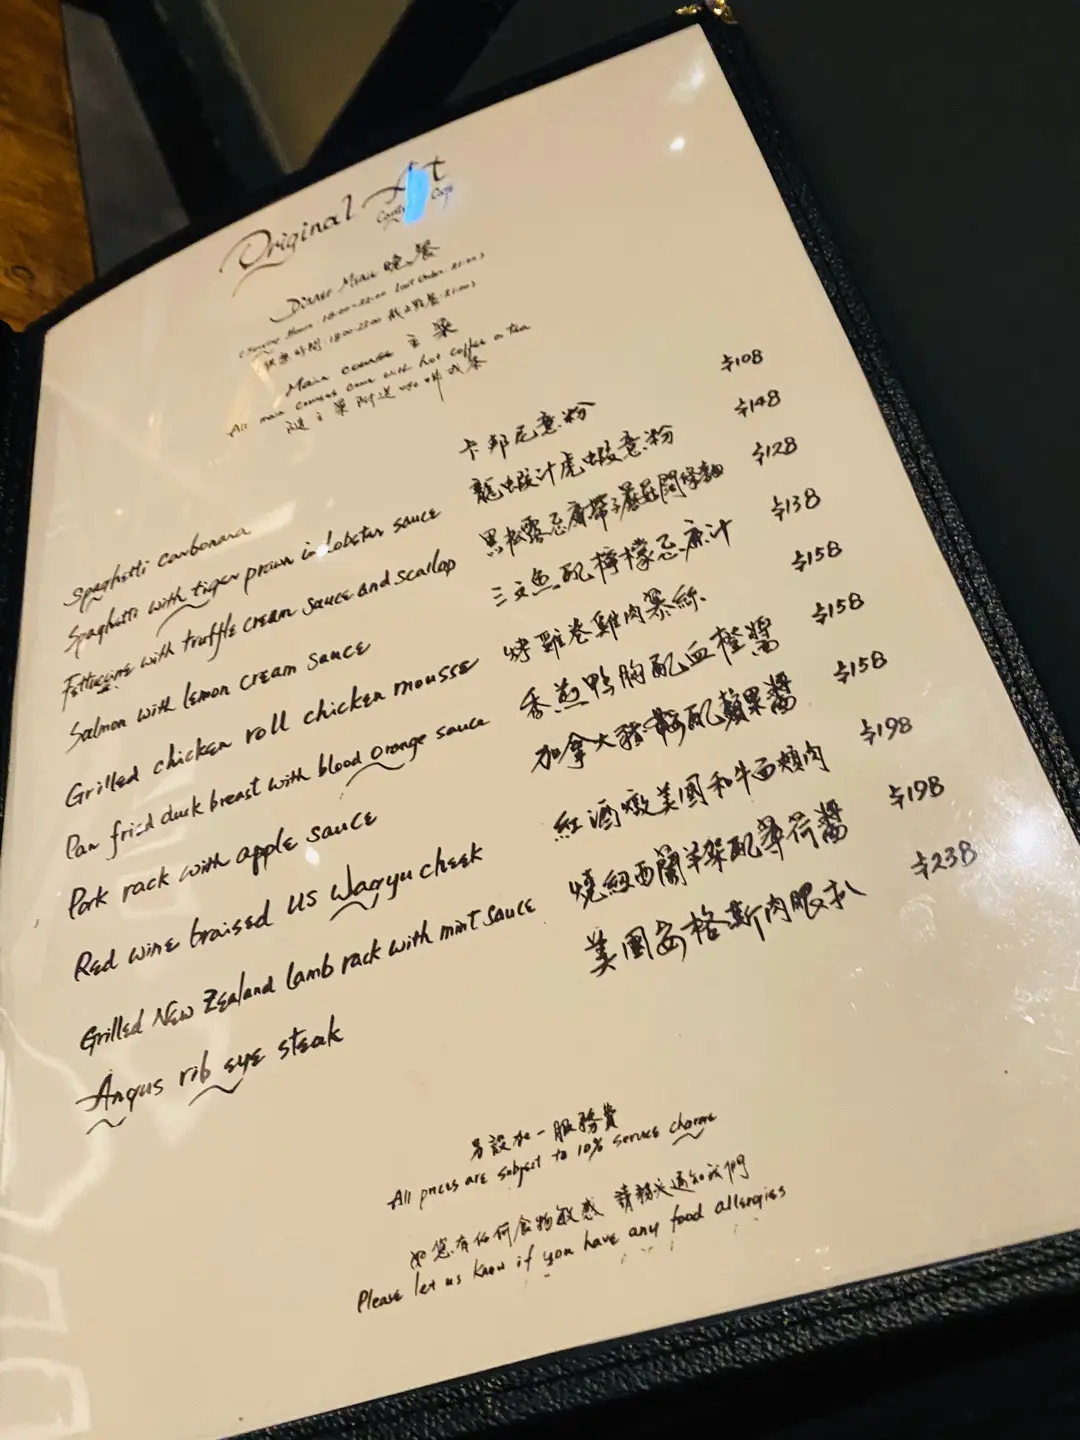 Original Art
Dinner Menu 晚餐
Opening Hours: 18:00-22:00 Last Order: 21:00)
供應時間: 18:00-22:00 截止點餐: 21:00)
Main course 主菜
All main courses come with hot coffee or tea
隨主菜附送咖啡或茶
Spaghetti carbonara 卡邦尼意粉 $108
Spaghetti with tiger prawn in lobster sauce 龍蝦汁虎蝦意粉 $148
Fettucine with truffle cream sauce and scallop 黑松露忌廉帶子蘑菇闊條麵 $128
Salmon with lemon cream sauce 三文魚配檸檬忌廉汁 $138
Grilled chicken roll chicken mousse 烤雞卷雞肉慕絲 $158
Pan fried duck breast with blood orange sauce 香煎鴨胸配血橙醬 $158
Pork rack with apple sauce 加拿大豬鞍配蘋果醬 $158
Red wine braised US Wagyu cheek 紅酒燉美國和牛面頰肉 $198
Grilled New Zealand lamb rack with mint sauce 燒紐西蘭羊架配薄荷醬 $198
Angus rib eye steak 美國安格斯肉眼扒 $238
另設加一服務費
All prices are subject to 10% service charge
如您有任何食物敏感 請務必通知我們
Please let us know if you have any food allergies